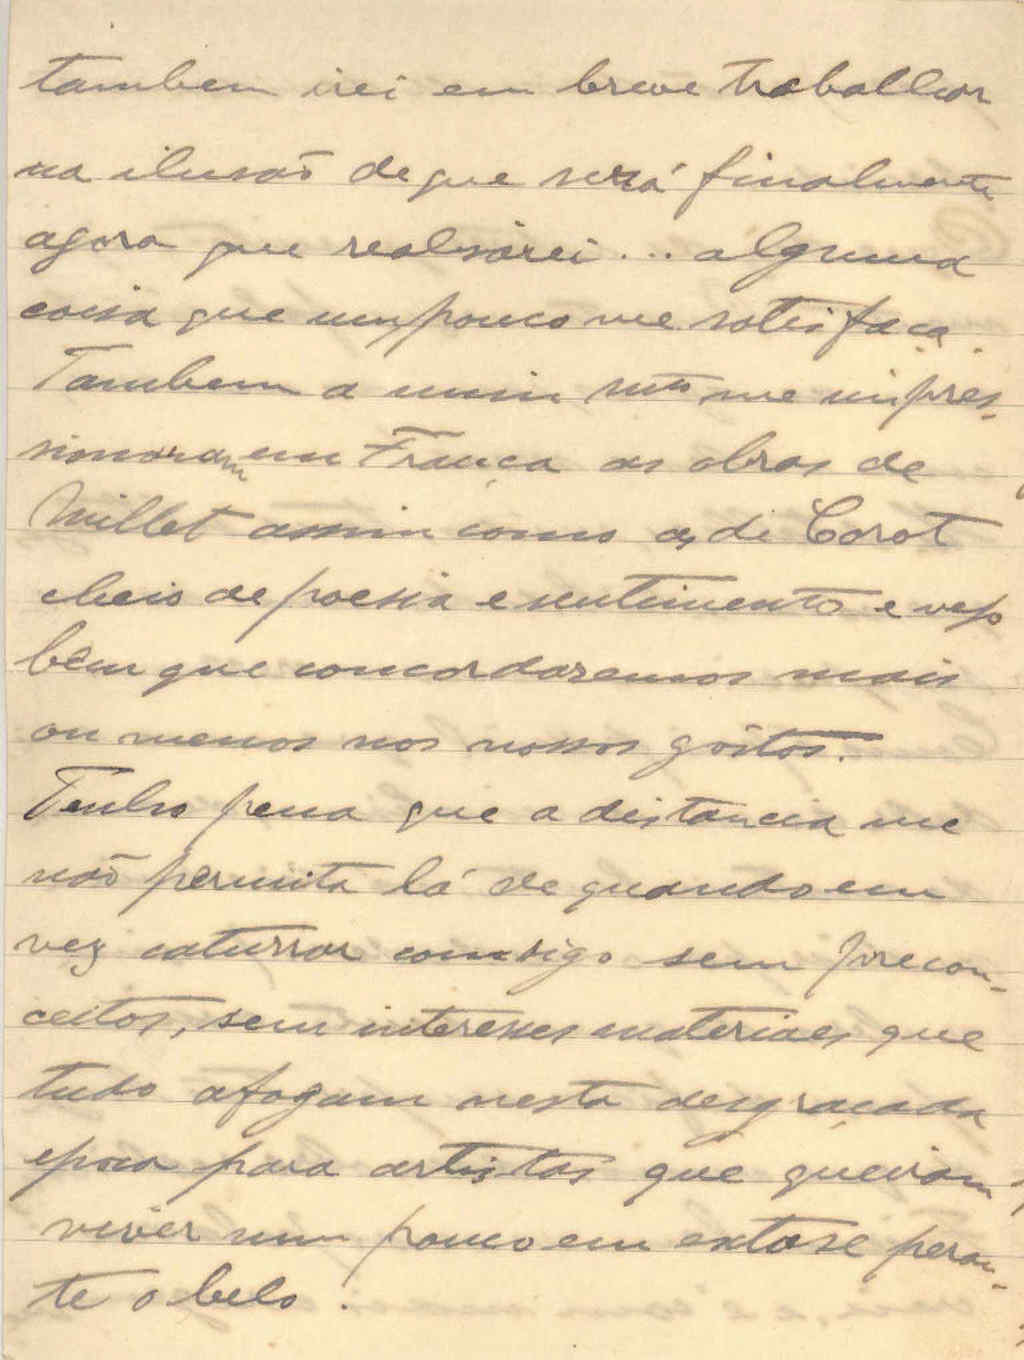 tambem irei em breve trabalhar
na ilusão de que será finalmente
agora que realisarei... alguma
coisa que um pouco me satisfaça.
Tambem a mim mto me impres-
sionaram em França as obras de
Millet assim como as de Corot
cheio de poesia e sentimento e vejo
bêm que concordaremos mais
ou menos nos nossos gôstos.
Tenho pena que a distancia me
não permita lá de quando em
vez caturrar comsigo sem precon-
ceitos, sem interesses materiaes que
tudo afogam nesta desgraçada
epoca para artistas que queiram
viver um pouco em extase peran-
te o belo.